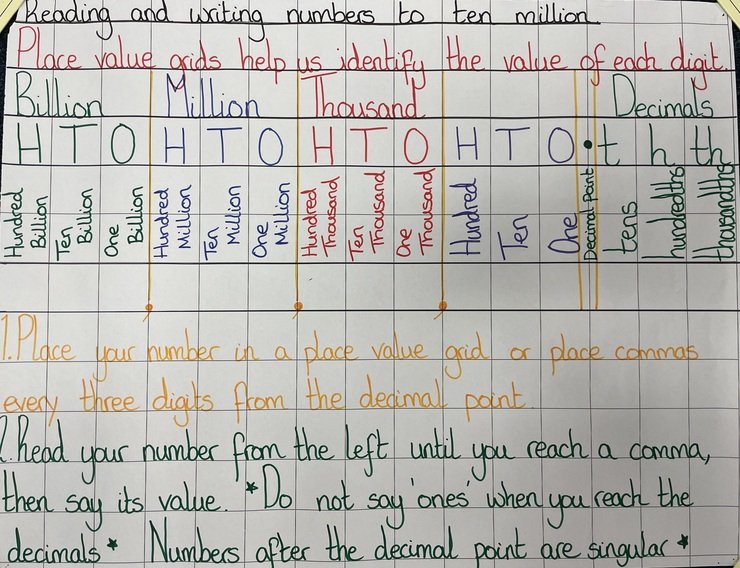 Reading and writing numbers to ten million
Place value grids help us identify the value of each digit.
Billion Million Thousand Decimals
H T O H T O H T O H T O . t h th
Hundred Billion Ten Billion One Billion Hundred Million Ten Million One Million Hundred Thousand Ten Thousand One Thousand Hundred Ten One Decimal Point tens hundredths thousandths
1. Place your number in a place value grid or place commas
every three digits from the decimal point.
2. Read your number from the left until you reach a comma,
then say its value. *Do not say 'ones' when you reach the
decimals* Numbers after the decimal point are singular *